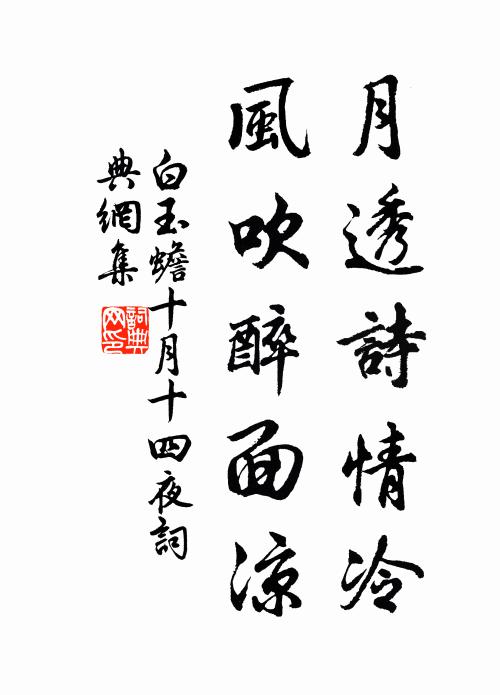 月透詩情冷
風吹醉面凉
白玉蟾十月十四夜詞
典網集
詞典
网印